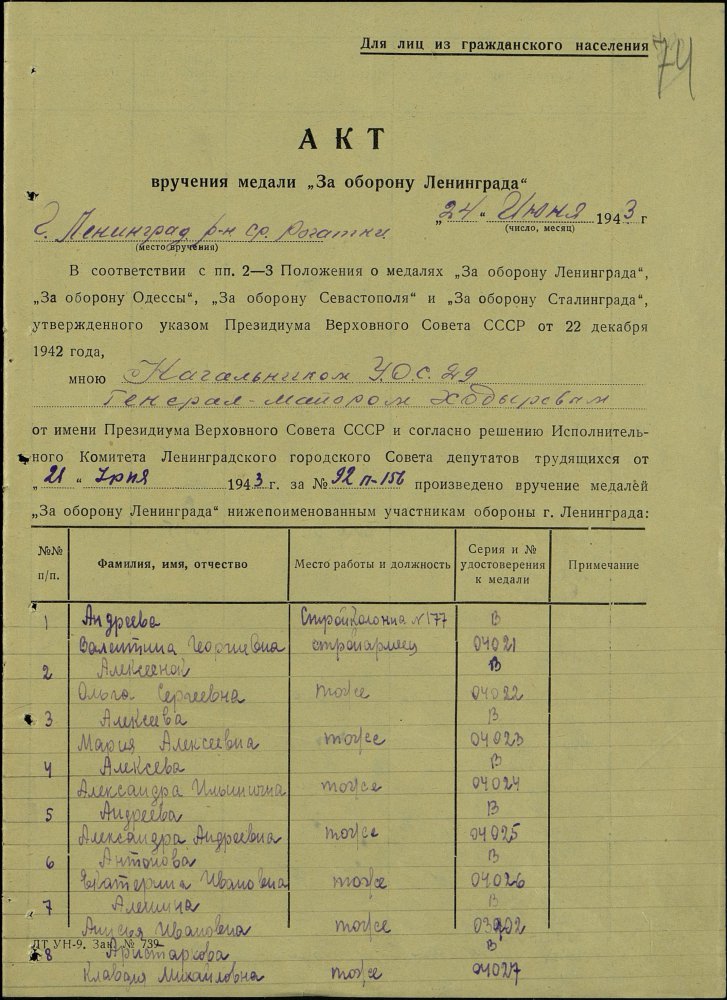 Для лиц из гражданского населения
74
АКТ
вручения медали „За оборону Ленинграда“
„24“ Июня 1943 г
(число, месяц)
г. Ленинград р-н ср. Рогатки
(место вручения)
В соответствии с пп. 2—3 Положения о медалях „За оборону Ленинграда“,
„За оборону Одессы“, „За оборону Севастополя“ и „За оборону Сталинграда“,
утвержденного указом Президиума Верховного Совета СССР от 22 декабря
1942 года,
мною Начальником У.О.С. 29
Генерал-майором Ходыревым
от имени Президиума Верховного Совета СССР и согласно решению Исполнитель-
ного Комитета Ленинградского городского Совета депутатов трудящихся от
„21“ 1943 г. за № 92 п-156 произведено вручение медалей
„За оборону Ленинграда“ нижепоименованным участникам обороны г. Ленинграда:
№№ п/п. Фамилия, имя, отчество Место работы и должность Серия и № удостоверения к медали Примечание
1 Андреева Стройколонна №177 В
Валентина Георгиевна стройармеец 04021
2 В
Ольга Сергеевна тоже 04022
3 Алексеева В
Мария Алексеевна тоже 04023
4 Алексева В
Александра Ильинична тоже 04024
5 Андреева В
Александра Андреевна тоже 04025
6 Антонова В
Екатерина Ивановна тоже 04026
7 Алешина В
Анисья Ивановна тоже 03902
ЛТ УН-9. Зак. № 739
8 Аристархова В
Клавдия Михайловна тоже 04027